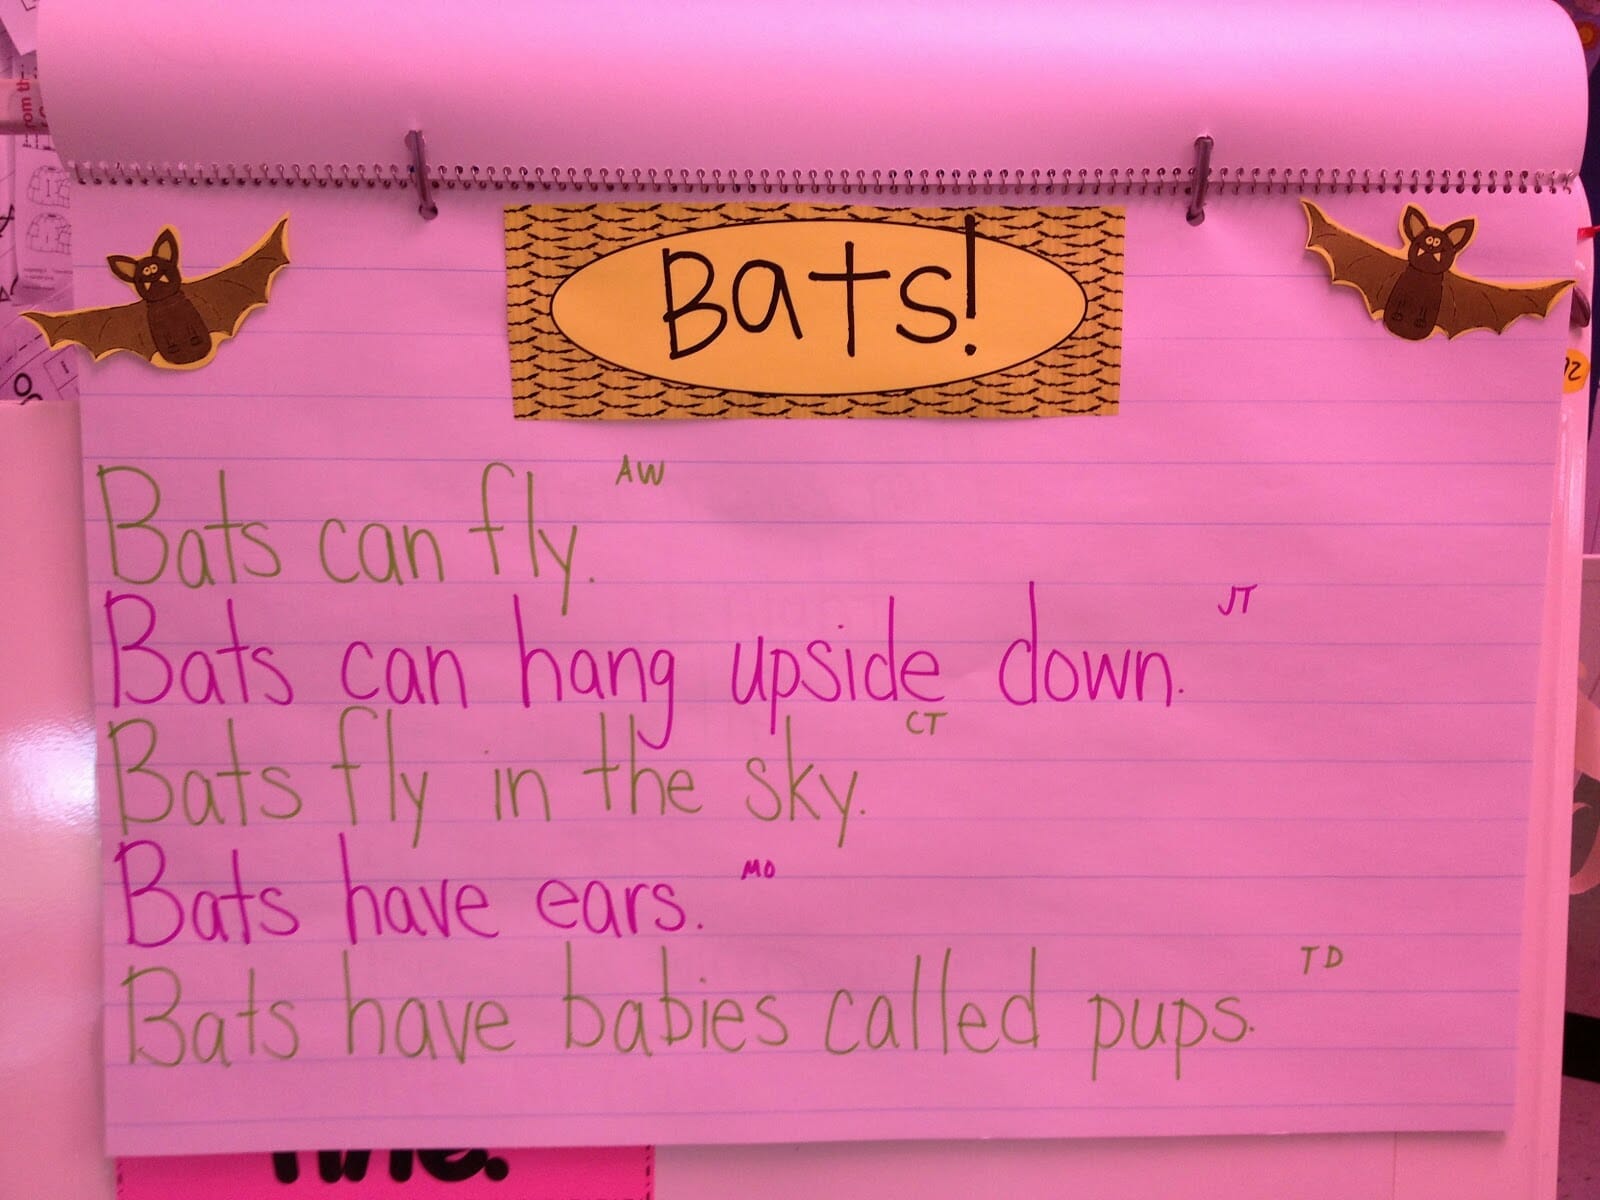 Bats!
AW
Bats can fly.
JT
Bats can hang upside down.
CT
Bats fly in the sky.
MO
Bats have ears.
TD
Bats have babies called pups.